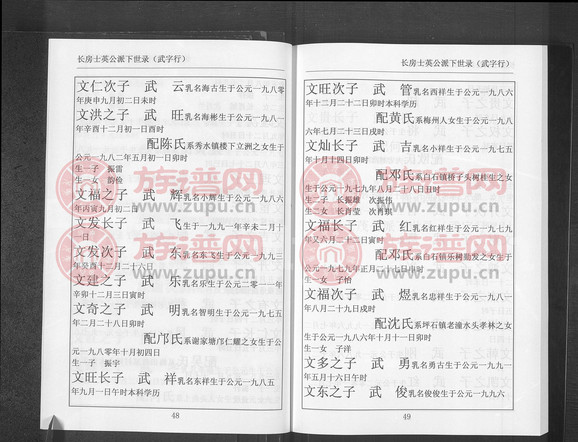 长房士英公派下世录（武字行）
文仁次子 武 云乳名海古生于公元一九八〇
年庚申九月初二日未时
文洪之子 武 旺乳名海彬生于公元一九八一
年辛酉十二月初一日酉时
配陈氏系秀水镇楼下立洲之女生于
公元一九八二年五月初一日卯时
生一子 振雷
生一女 韵俭
文福之子 武 辉乳名小辉生于公元一九八六
年丙寅九月初二日
文发长子 武 飞生于一九九一年辛未二月十
日
文发次子 武 东乳名东飞生于公元一九九三
年癸酉十二月二十六日
文建之子 武 乐乳名乐生于公元二〇一一年
辛卯十二月三日寅时
文奇之子 武 明乳名智明生于公元一九七五
年二月二十八日卯时
配邝氏系谢家塘邝仁耀之女生于公
元一九八〇年十月初四日
生一子 振宇
文旺长子 武 祥乳名东祥生于公元一九八五
年九月一日午时本科学历
48
长房士英公派下世录（武字行）
文旺次子 武 管乳名西祥生于公元一九八六
年十二月二十二日卯时本科学历
配黄氏系梅州人女生于公元一九八
六年七月二十三日戌时
文灿长子 武 吉乳名小祥生于公元一九七五
年十月十四日卯时
配邓氏系白石镇桥子头树桂生之女
生于公元一九七九年八月二十八日丑时
生二子 长振雄 次振伟
生二女 长肖莹 次肖琪
文福长子 武 红乳名红祥生于公元一九七九
年又六月二十二日寅时
配邓氏系白石镇乐树勋发之女生于
公元一九七九年正月二十七日申时
生一女 子怡
文福次子 武 煜乳名忠祥生于公元一九八一
配沈氏系坪石镇老潼水头孝林之女
生于公元一九八六年十月十一日卯时
生一女 子洋
文多之子 武 勇乳名勇古生于公元一九九一
年五月十六日午时
文东之子 武 俊乳名俊俊生于公元一九九六
49
族谱网
www.zupu.cn
族谱网
www.zupu.cn
族谱网
www.zupu.cn
族谱网
www.zupu.cn